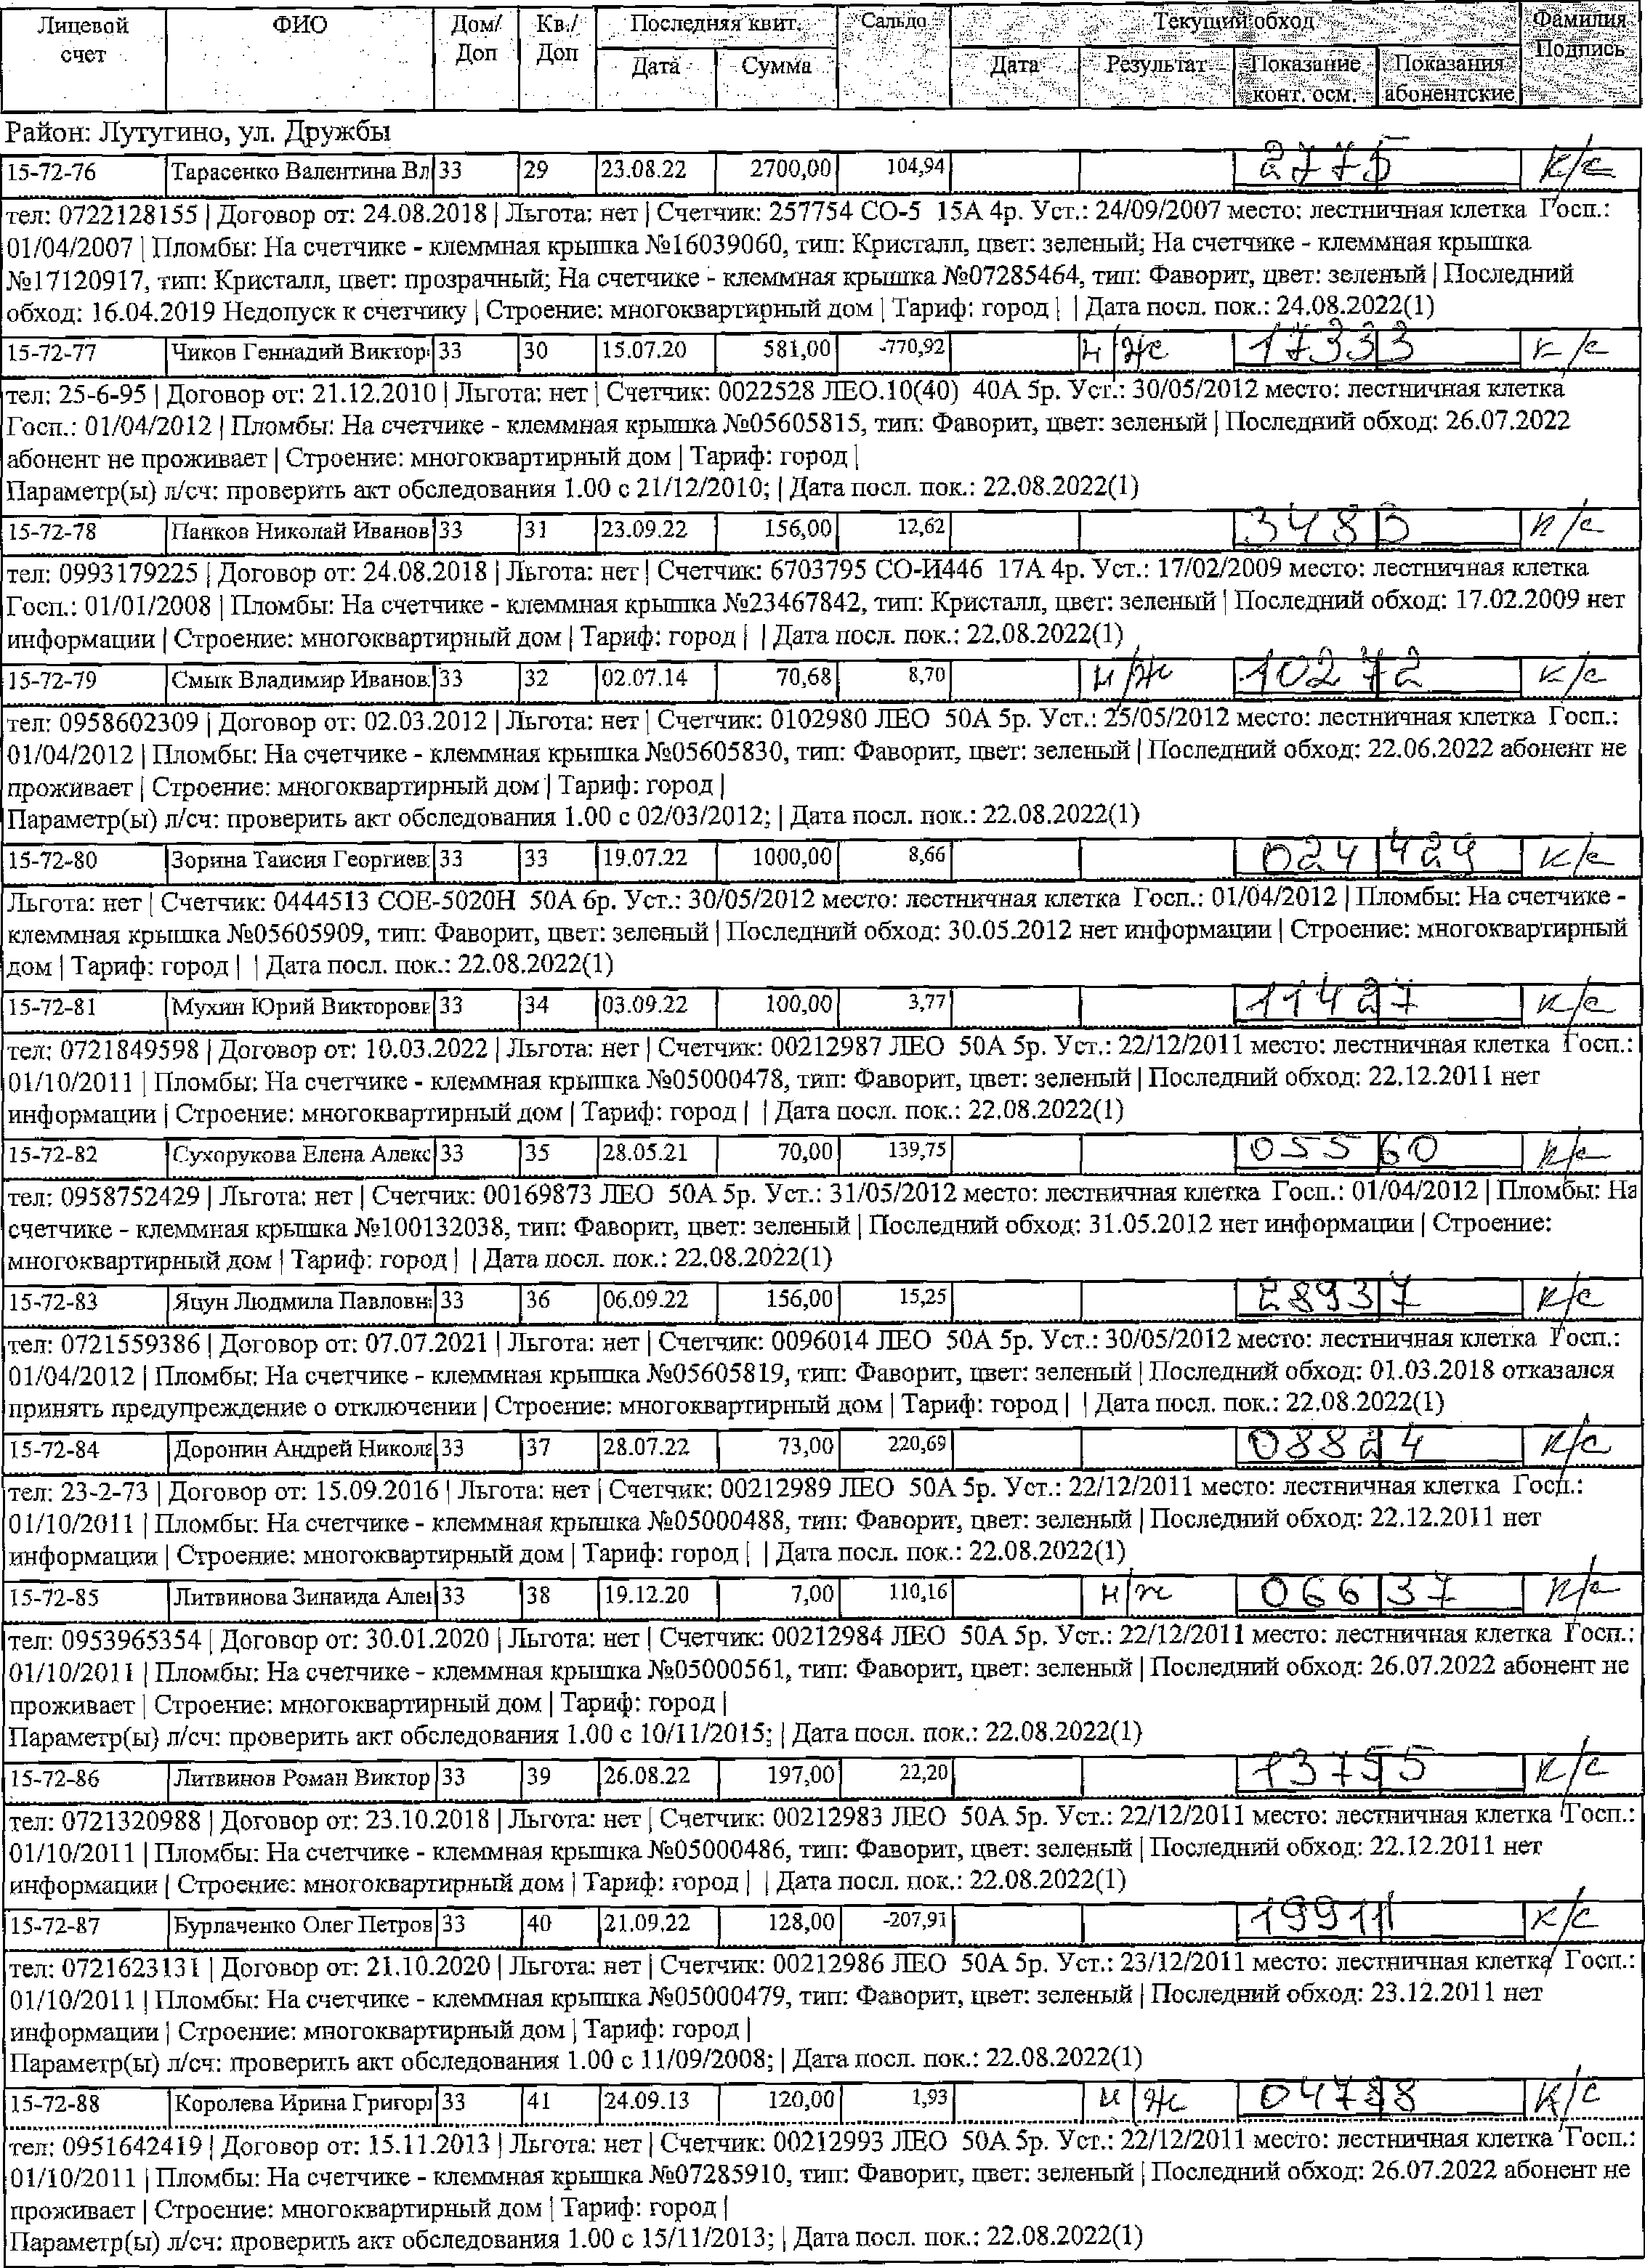 Лицевой счет ФИО Дом/Доп Кв./Доп Последняя квит. Дата Сумма Сальдо Текущий обход Дата Результат Показание конт. осм. Показания абонентские Фамилия Подпись
Район: Лутугино, ул. Дружбы
15-72-76 Тарасенко Валентина Вл 33 29 23.08.22 2700,00 104,94 2775 к/с
тел: 0722128155 | Договор от: 24.08.2018 | Льгота: нет | Счетчик: 257754 СО-5 15А 4р. Уст.: 24/09/2007 место: лестничная клетка Госп.:
01/04/2007 | Пломбы: На счетчике - клеммная крышка №16039060, тип: Кристалл, цвет: зеленый; На счетчике - клеммная крышка
№17120917, тип: Кристалл, цвет: прозрачный; На счетчике - клеммная крышка №07285464, тип: Фаворит, цвет: зеленый | Последний
обход: 16.04.2019 Недопуск к счетчику | Строение: многоквартирный дом | Тариф: город | | Дата посл. пок.: 24.08.2022(1)
15-72-77 Чиков Геннадий Виктор 33 30 15.07.20 581,00 -770,92 н/ж 17333 к/с
тел: 25-6-95 | Договор от: 21.12.2010 | Льгота: нет | Счетчик: 0022528 ЛЕО.10(40) 40А 5р. Уст.: 30/05/2012 место: лестничная клетка
Госп.: 01/04/2012 | Пломбы: На счетчике - клеммная крышка №05605815, тип: Фаворит, цвет: зеленый | Последний обход: 26.07.2022
абонент не проживает | Строение: многоквартирный дом | Тариф: город |
Параметр(ы) л/сч: проверить акт обследования 1.00 с 21/12/2010; | Дата посл. пок.: 22.08.2022(1)
15-72-78 Панков Николай Иванов 33 31 23.09.22 156,00 12,62 3483 к/с
тел: 0993179225 | Договор от: 24.08.2018 | Льгота: нет | Счетчик: 6703795 СО-И446 17А 4р. Уст.: 17/02/2009 место: лестничная клетка
Госп.: 01/01/2008 | Пломбы: На счетчике - клеммная крышка №23467842, тип: Кристалл, цвет: зеленый | Последний обход: 17.02.2009 нет
информации | Строение: многоквартирный дом | Тариф: город | | Дата посл. пок.: 22.08.2022(1)
15-72-79 Смык Владимир Иванов. 33 32 02.07.14 70,68 8,70 н/ж 10272 к/с
тел: 0958602309 | Договор от: 02.03.2012 | Льгота: нет | Счетчик: 0102980 ЛЕО 50А 5р. Уст.: 25/05/2012 место: лестничная клетка Госп.:
01/04/2012 | Пломбы: На счетчике - клеммная крышка №05605830, тип: Фаворит, цвет: зеленый | Последний обход: 22.06.2022 абонент не
проживает | Строение: многоквартирный дом | Тариф: город |
Параметр(ы) л/сч: проверить акт обследования 1.00 с 02/03/2012; | Дата посл. пок.: 22.08.2022(1)
15-72-80 Зорина Таисия Георгиев 33 33 19.07.22 1000,00 8,66 024429 к/с
Льгота: нет | Счетчик: 0444513 СОЕ-5020Н 50А 6р. Уст.: 30/05/2012 место: лестничная клетка Госп.: 01/04/2012 | Пломбы: На счетчике -
клеммная крышка №05605909, тип: Фаворит, цвет: зеленый | Последний обход: 30.05.2012 нет информации | Строение: многоквартирный
дом | Тариф: город | | Дата посл. пок.: 22.08.2022(1)
15-72-81 Мухин Юрий Викторови 33 34 03.09.22 100,00 3,77 11427 к/с
тел: 0721849598 | Договор от: 10.03.2022 | Льгота: нет | Счетчик: 00212987 ЛЕО 50А 5р. Уст.: 22/12/2011 место: лестничная клетка Госп.:
01/10/2011 | Пломбы: На счетчике - клеммная крышка №05000478, тип: Фаворит, цвет: зеленый | Последний обход: 22.12.2011 нет
информации | Строение: многоквартирный дом | Тариф: город | | Дата посл. пок.: 22.08.2022(1)
15-72-82 Сухорукова Елена Алекс 33 35 28.05.21 70,00 139,75 05560 к/с
тел: 0958752429 | Льгота: нет | Счетчик: 00169873 ЛЕО 50А 5р. Уст.: 31/05/2012 место: лестничная клетка Госп.: 01/04/2012 | Пломбы: На
счетчике - клеммная крышка №100132038, тип: Фаворит, цвет: зеленый | Последний обход: 31.05.2012 нет информации | Строение:
многоквартирный дом | Тариф: город | | Дата посл. пок.: 22.08.2022(1)
15-72-83 Яцун Людмила Павловн 33 36 06.09.22 156,00 15,25 28937 к/с
тел: 0721559386 | Договор от: 07.07.2021 | Льгота: нет | Счетчик: 0096014 ЛЕО 50А 5р. Уст.: 30/05/2012 место: лестничная клетка Госп.:
01/04/2012 | Пломбы: На счетчике - клеммная крышка №05605819, тип: Фаворит, цвет: зеленый | Последний обход: 01.03.2018 отказался
принять предупреждение о отключении | Строение: многоквартирный дом | Тариф: город | | Дата посл. пок.: 22.08.2022(1)
15-72-84 Доронин Андрей Никола 33 37 28.07.22 73,00 220,69 08824 к/с
тел: 23-2-73 | Договор от: 15.09.2016 | Льгота: нет | Счетчик: 00212989 ЛЕО 50А 5р. Уст.: 22/12/2011 место: лестничная клетка Госп.:
01/10/2011 | Пломбы: На счетчике - клеммная крышка №05000488, тип: Фаворит, цвет: зеленый | Последний обход: 22.12.2011 нет
информации | Строение: многоквартирный дом | Тариф: город | | Дата посл. пок.: 22.08.2022(1)
15-72-85 Литвинова Зинаида Алек 33 38 19.12.20 7,00 110,16 н/ж 06637 к/с
тел: 0953965354 | Договор от: 30.01.2020 | Льгота: нет | Счетчик: 00212984 ЛЕО 50А 5р. Уст.: 22/12/2011 место: лестничная клетка Госп.:
01/10/2011 | Пломбы: На счетчике - клеммная крышка №05000561, тип: Фаворит, цвет: зеленый | Последний обход: 26.07.2022 абонент не
проживает | Строение: многоквартирный дом | Тариф: город |
Параметр(ы) л/сч: проверить акт обследования 1.00 с 10/11/2015; | Дата посл. пок.: 22.08.2022(1)
15-72-86 Литвинов Роман Виктор 33 39 26.08.22 197,00 22,20 13755 к/с
тел: 0721320988 | Договор от: 23.10.2018 | Льгота: нет | Счетчик: 00212983 ЛЕО 50А 5р. Уст.: 22/12/2011 место: лестничная клетка Госп.:
01/10/2011 | Пломбы: На счетчике - клеммная крышка №05000486, тип: Фаворит, цвет: зеленый | Последний обход: 22.12.2011 нет
информации | Строение: многоквартирный дом | Тариф: город | | Дата посл. пок.: 22.08.2022(1)
15-72-87 Бурлаченко Олег Петров 33 40 21.09.22 128,00 -207,91 19911 к/с
тел: 0721623131 | Договор от: 21.10.2020 | Льгота: нет | Счетчик: 00212986 ЛЕО 50А 5р. Уст.: 23/12/2011 место: лестничная клетка Госп.:
01/10/2011 | Пломбы: На счетчике - клеммная крышка №05000479, тип: Фаворит, цвет: зеленый | Последний обход: 23.12.2011 нет
информации | Строение: многоквартирный дом | Тариф: город |
Параметр(ы) л/сч: проверить акт обследования 1.00 с 11/09/2008; | Дата посл. пок.: 22.08.2022(1)
15-72-88 Королева Ирина Григорі 33 41 24.09.13 120,00 1,93 н/ж 04788 к/с
тел: 0951642419 | Договор от: 15.11.2013 | Льгота: нет | Счетчик: 00212993 ЛЕО 50А 5р. Уст.: 22/12/2011 место: лестничная клетка Госп.:
01/10/2011 | Пломбы: На счетчике - клеммная крышка №07285910, тип: Фаворит, цвет: зеленый | Последний обход: 26.07.2022 абонент не
проживает | Строение: многоквартирный дом | Тариф: город |
Параметр(ы) л/сч: проверить акт обследования 1.00 с 15/11/2013; | Дата посл. пок.: 22.08.2022(1)